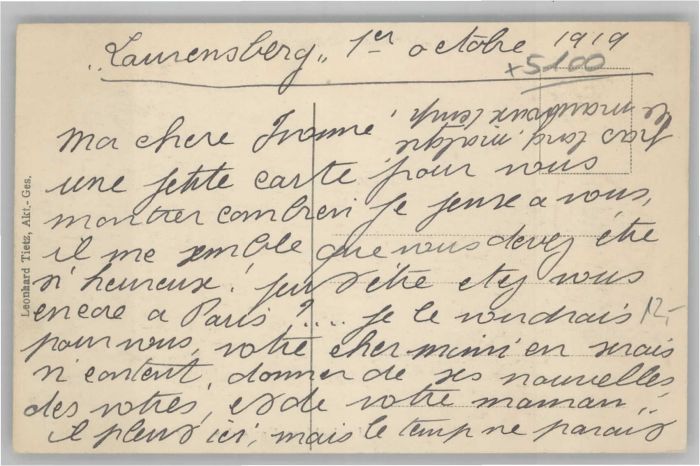 „Laurensberg„ 1er octobre 1919
+5100
Ma chere Ivonne,
une petite carte pour vous
montrer combien je pense a vous,
il me semble que vous devez être
si heureux! peut être etez vous
encore a Paris ?.... je le voudrais
pour vous, votre cher mimi en serais
si content, donner de ses nouvelles
des votres, et de votre maman!!
il pleut ici, mais le temp ne parait
pas long, malgre
le mauvaux temp.
12,-
Leonhard Tietz, Akt.-Ges.